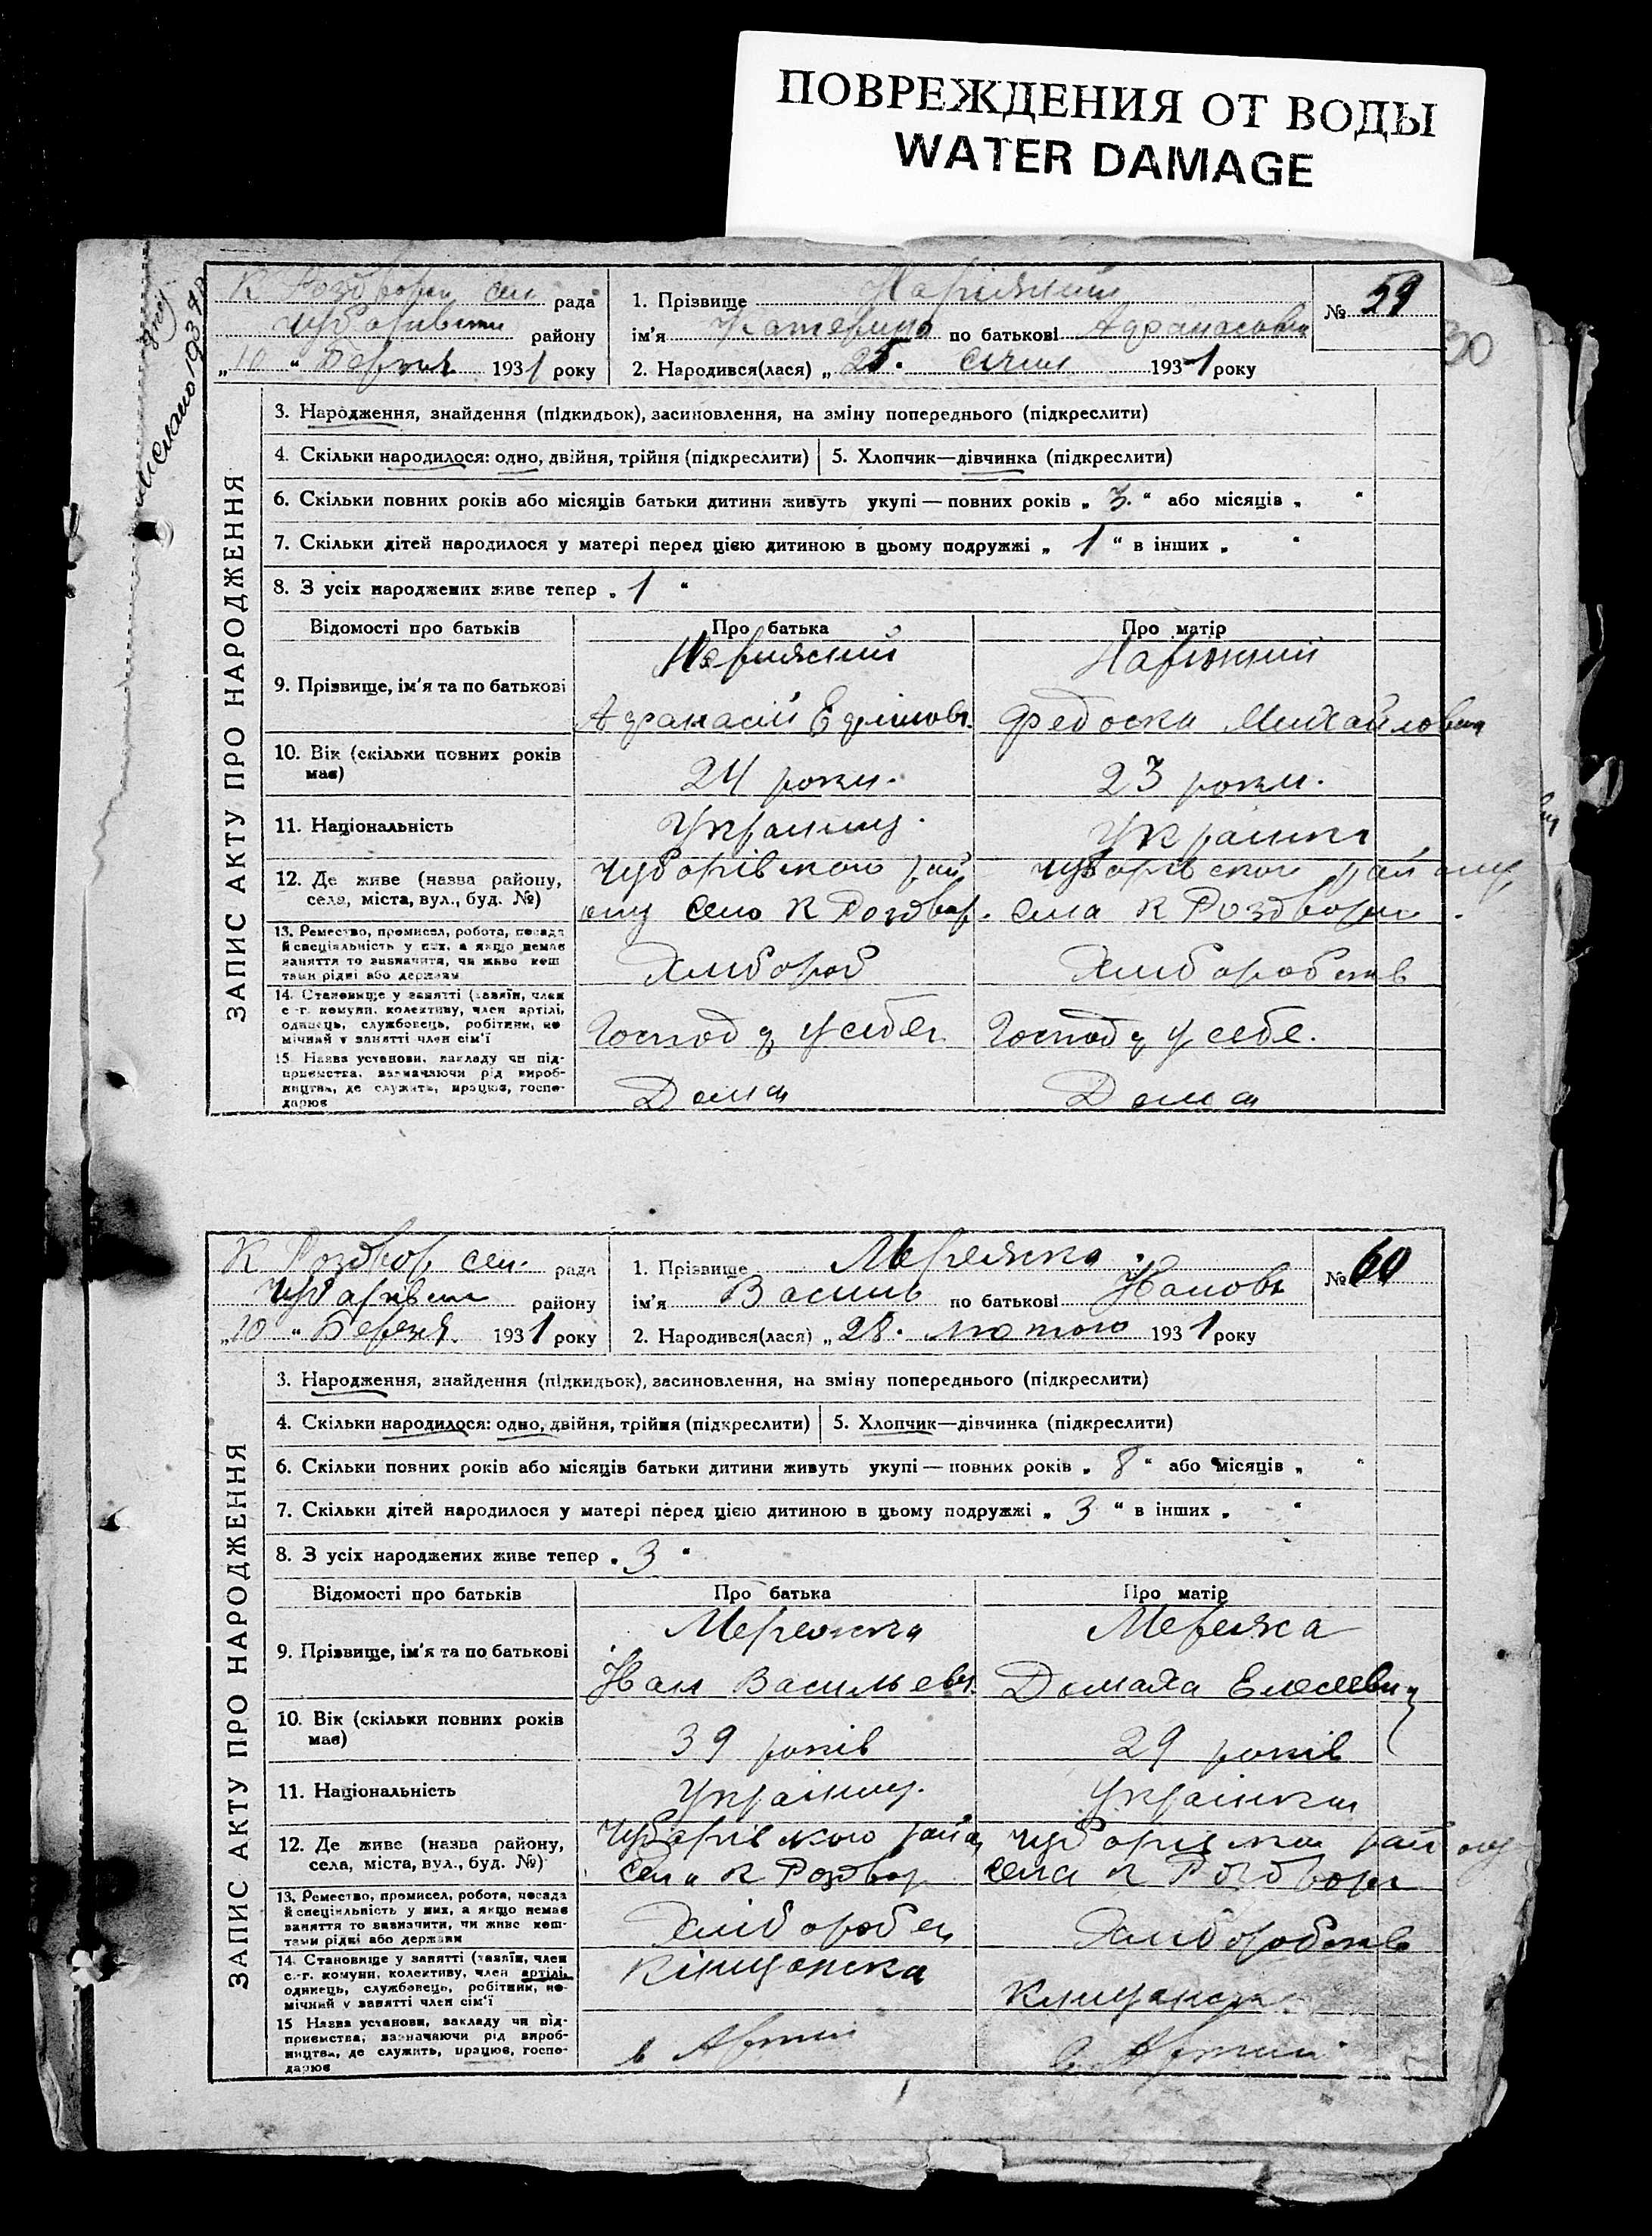 ПОВРЕЖДЕНИЯ ОТ ВОДЫ
WATER DAMAGE
30
ЗАПИС АКТУ ПРО НАРОДЖЕННЯ
К Роздори сел рада
Чубарівськ району
„10“ Березня 1931 року
1. Прізвище Наріжний
№ 59
ім'я Катерина по батькові Афанасовна
2. Народився(лася) „25. січня 1931 року
3. Народження, знайдення (підкидьок), засиновлення, на зміну попереднього (підкреслити)
4. Скільки народилося: одно, двійня, трійня (підкреслити) 5. Хлопчик—дівчинка (підкреслити)
6. Скільки повних років або місяців батьки дитини живуть укупі — повних років „3.“ або місяців „ “
7. Скільки дітей народилося у матері перед цією дитиною в цьому подружжі „1“ в інших „ “
8. З усіх народжених живе тепер „1“
Відомості про батьків Про батька Про матір
9. Прізвище, ім'я та по батькові
Наріжний Наріжний
Афанасій Ефімов. Федоска Михайловна
10. Вік (скільки повних років має)
24 роки. 23 роки.
11. Національність
Українец. Українка
12. Де живе (назва району, села, міста, вул., буд. №)
Чубарівского рай Чубарівского району
ону село К Роздвор. села К Роздвори.
13. Ремество, промисел, робота, посада й спеціяльність у них, а якщо немає заняття то визначити, чи живе коштами рідні або держави
Хлібороб Хліборобств
14. Становище у занятті (хазяїн, член с.-г. комуни, колективу, член артілі, одинець, службовець, робітник, помічний у занятті член сім'ї
Господ у себе Господ у себе.
15. Назва установи, закладу чи підприємства, зазначаючи рід виробництва, де служить, працює, господарює
Дома Дома
ЗАПИС АКТУ ПРО НАРОДЖЕННЯ
К Роздвор. сел. рада
Чубарівськ району
„10“ Березня. 1931 року
1. Прізвище Мережка.
№ 60
ім'я Василь по батькові Іванов
2. Народився(лася) „28. лютого 1931 року
3. Народження, знайдення (підкидьок), засиновлення, на зміну попереднього (підкреслити)
4. Скільки народилося: одно, двійня, трійня (підкреслити) 5. Хлопчик—дівчинка (підкреслити)
6. Скільки повних років або місяців батьки дитини живуть укупі — повних років „8“ або місяців „ “
7. Скільки дітей народилося у матері перед цією дитиною в цьому подружжі „3“ в інших „ “
8. З усіх народжених живе тепер „3“
Відомості про батьків Про батька Про матір
9. Прізвище, ім'я та по батькові
Мережка Мережа
Іван Васильевч. Домаха
10. Вік (скільки повних років має)
39 років 29 років
11. Національність
Українец. Українка
12. Де живе (назва району, села, міста, вул., буд. №)
Чубарівского район Чубарівско району
села К Роздвор села К Роздвори
13. Ремество, промисел, робота, посада й спеціяльність у них, а якщо немає заняття то визначити, чи живе коштами рідні або держави
Хлібороб Хліборобств
14. Становище у занятті (хазяїн, член с.-г. комуни, колективу, член артілі, одинець, службовець, робітник, помічний у занятті член сім'ї
15 Назва установи, закладу чи підприємства, зазначаючи рід виробництва, де служить, працює, господарює
в Артілі в Артілі